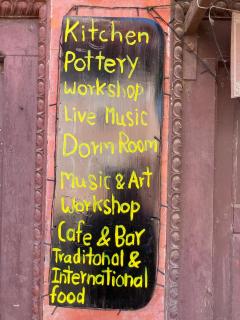 Kitchen
Pottery
Workshop
Live Music
Dorm Room
Music & Art
Workshop
Cafe & Bar
Traditonal &
International
food